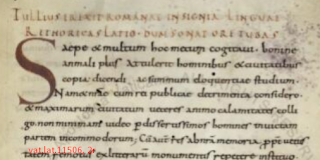 TULLIUS EREXIT ROMANAE INSIGNIA LINGUAE
RHETORICAS LATIO DUM SONAT ORE TUBAS
Saepe & multum hoc mecum cogitavi. bonine
an mali plus attulerit hominibus & civitatibus
copia dicendi. ac summum eloquentiae studium.
Nam cum & rei publicae detrimenta considero.
& maximarum civitatum veteres animo calamitates colli
go. non minimam video p disertissimos homines invectam
partem incommodorum; Cũ autẽ res ab memoria. ppt vetus
tatem remotas ex litterarũ monumentis repetere instituo.
vat.lat.11506, 2